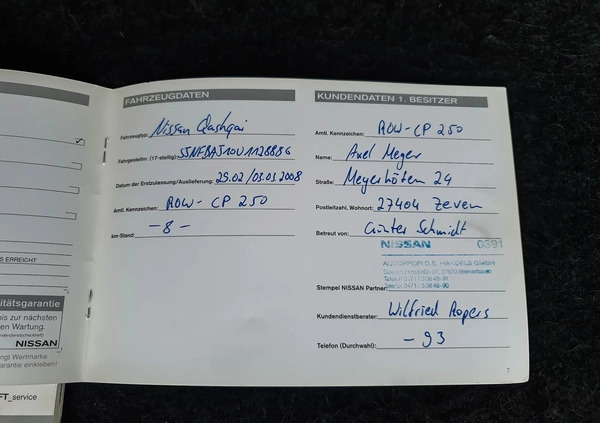 S ERREICHT
itätsgarantie
bis zur nächsten
en Wartung.
NISSAN
ngt Wertmarke
arantie einkleben!
FT_service
FAHRZEUGDATEN
Fahrzeugtyp: Nissan Qashqai
Fahrgestellnr. (17-stellig): SJNFBAJ10U1128886
Datum der Erstzulassung/Auslieferung: 29.02/03.03.2008
Amtl. Kennzeichen: ROW-CP 250
km-Stand: -8-
KUNDENDATEN 1. BESITZER
Amtl. Kennzeichen: ROW-CP 250
Name: Axel Meyer
Straße: Meyerhöfen 24
Postleitzahl, Wohnort: 27404 Zeven
Betreut von: Günter Schmidt
NISSAN 0391
HANDELS GMBH
Stempel NISSAN Partner:
Kundendienstberater: Wilfried Ropers
Telefon (Durchwahl): -93
7